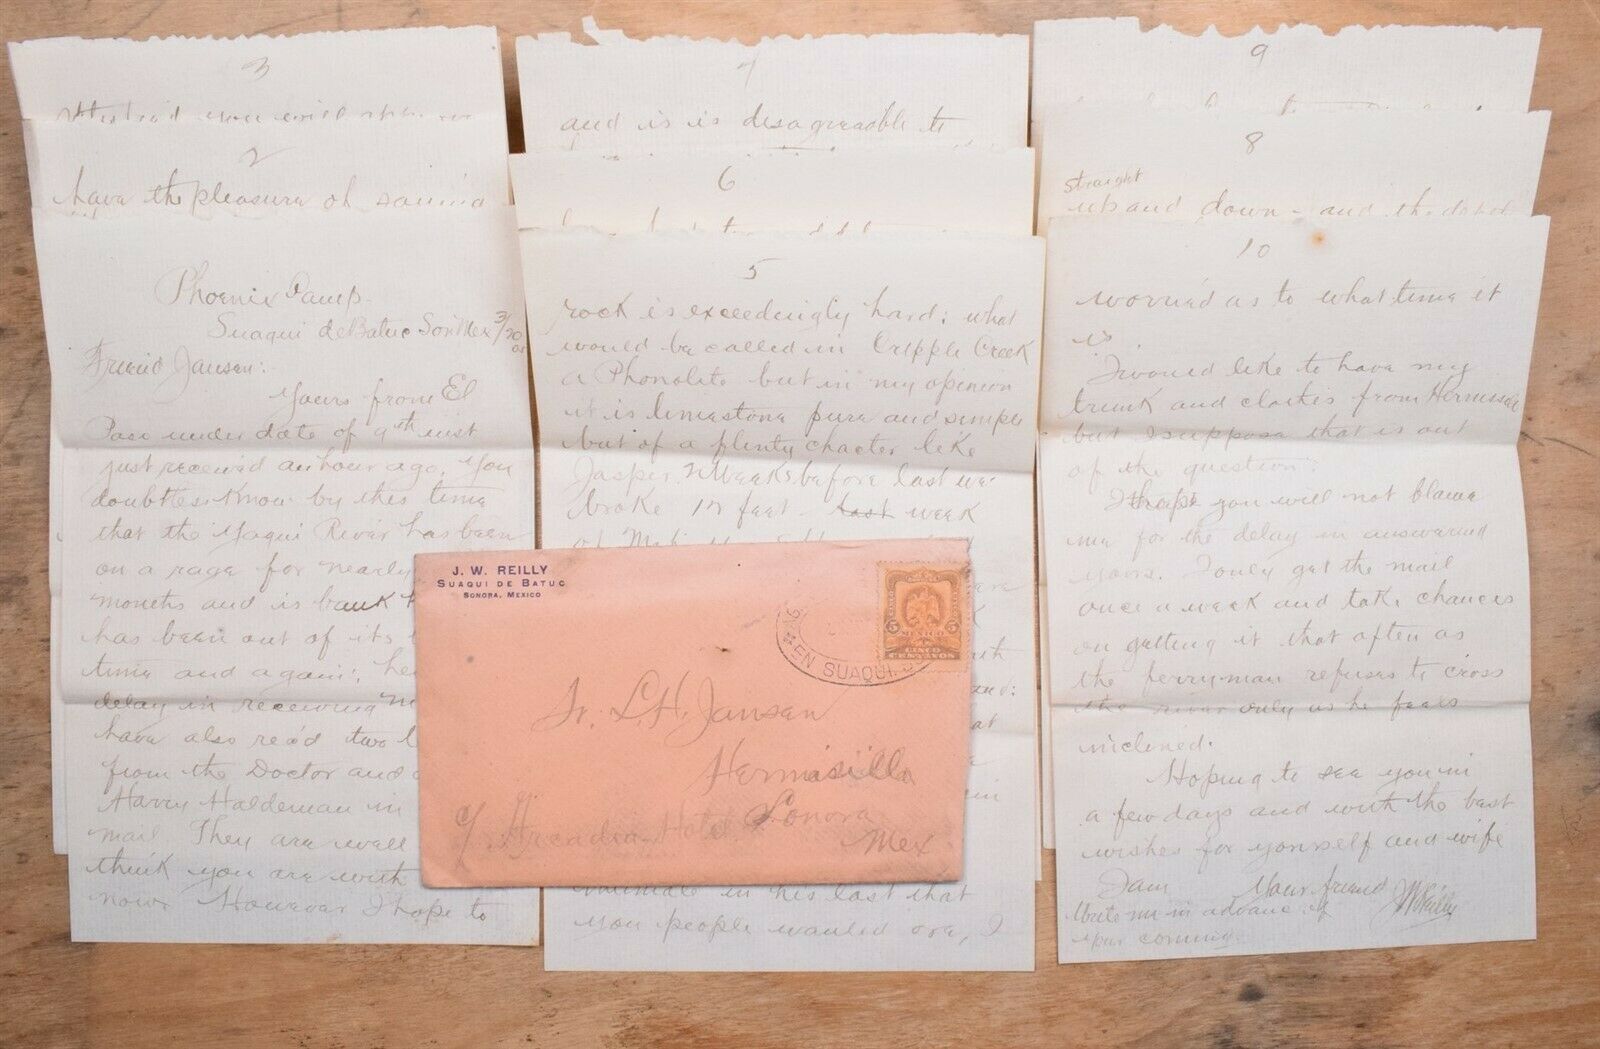 3
you will
2
have the pleasure of
Phoenix Camp-
Suaqui de Batuc Son Mex 3/20
Friend Jansen:
Yours from El
Paso under date of 9th inst
just received an hour ago. You
doubtless know by this time
that the Yaqui River has been
on a rage for nearly
months and is bank
has been out of its
time and again; he
delay in receiving
have also rec'd two
from the Doctor and
Harry Haldeman in
mail They are well
think you are with
now. However I hope to
and is is disagreeable to
6
5
rock is exceedingly hard; what
would be called in Cripple Creek
a Phonolite but in my opinion
it is limestone pure and simple
but of a flinty chacter like
Jasper. 2 Weeks before last we
broke 12 feet - last week
in his last that
you people wanted ore, I
J. W. REILLY
SUAQUI DE BATUC
SONORA, MEXICO
EN SUAQUI. S
5 MEXICO 5
CINCO
CENTAVOS
Sr. L. H. Jansen
Hermisillo
c/ Arcadia Hotel Sonora
Mex
9
8
straight
up and down - and the
10
worried as to what time it
is.
I would like to have my
trunk and clothes from Hermisillo
but I suppose that is out
of the question.
I hope you will not blame
me for the delay in answering
yours. I only get the mail
once a week and take chances
on getting it that often as
the ferryman refuses to cross
the river only as he feels
inclined.
Hoping to see you in
a few days and with the best
wishes for yourself and wife
I am Your friend JWReilly
Write me in advance of
your coming.